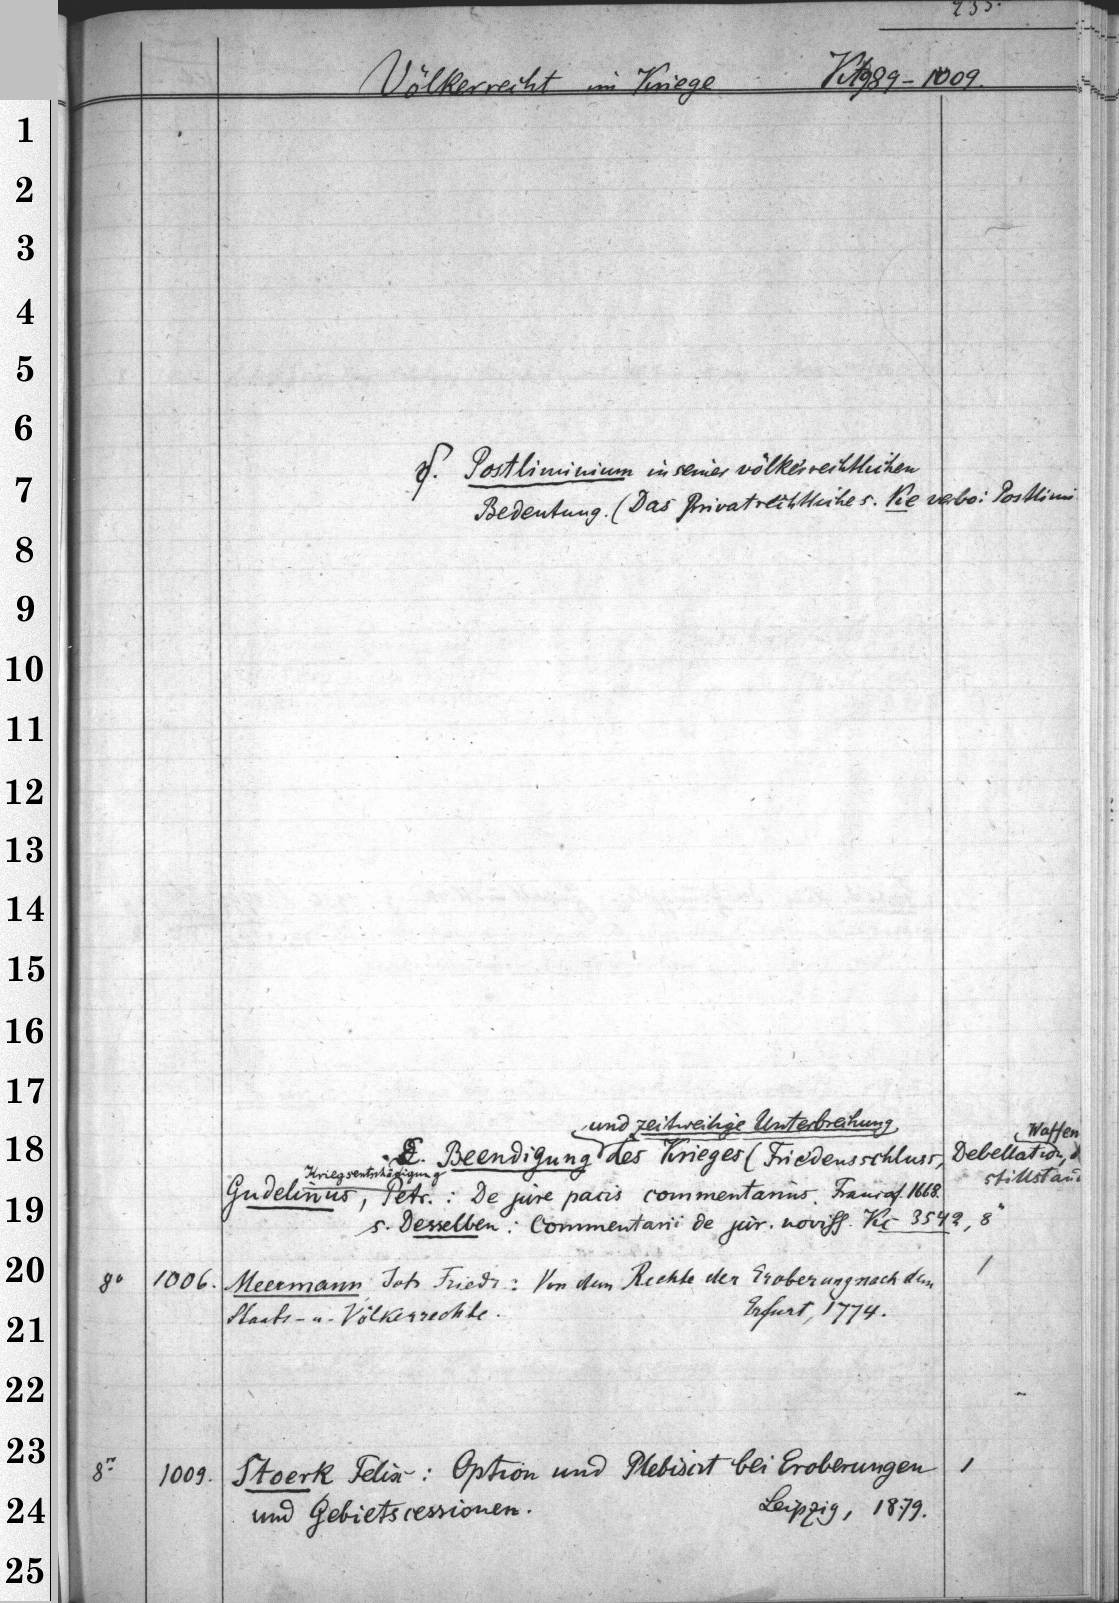 235.
Völkerrecht im Kriege Kt 989-1009.
1
2
3
4
5
6
γ. Postliminium in seiner völkerrechtlichen
7
Bedeutung. (Das Privatrechtliche s. Ke verbo: Postlimi
8
9
10
11
12
13
14
15
16
17
und zeitweilige Unterbrechung
18
Waffen
Beendigung des Krieges (Friedensschluss, Debellation,
Kriegsentschädigung stillstand
Gudelinus, Petr.: De jure pacis commentarius. Francof. 1668.
19
s. Desselben: Commentarii de jur. noviss. Kc 3542, 8°
20
8° 1006. Meermann, Joh. Friedr.: Von dem Rechte der Eroberung nach dem 1
21
Staats- u. Völkerrechte. Erfurt, 1774.
22
23
8° 1009. Stoerk Felix: Option und Plebiscit bei Eroberungen 1
24
und Gebietscessionen. Leipzig, 1879.
25